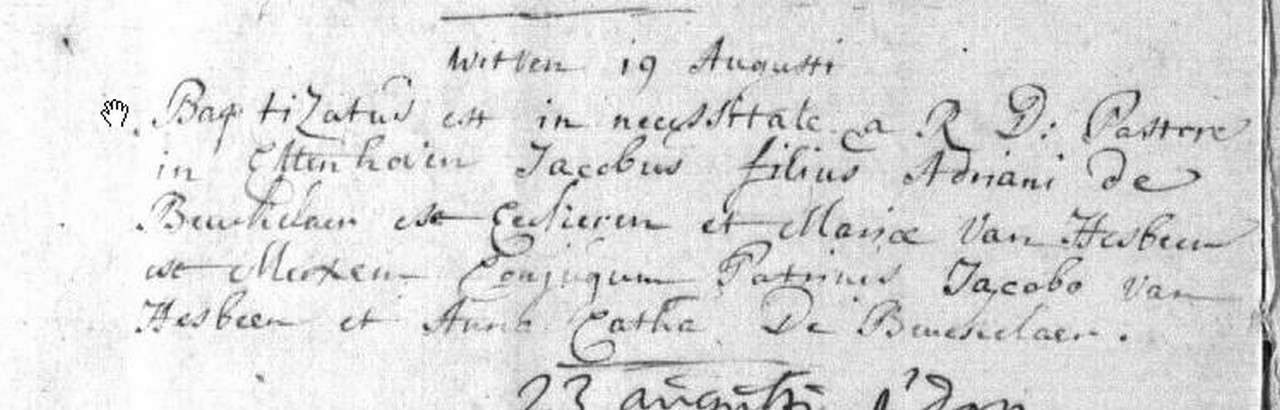 Witven 19 Augusti
Baptizatus est in necessitate a R D: Pastore
in Ettenhoven Jacobus filius Adriani de
Beuckelaer est Eeckeren et Mariæ Van Hesbeen
est Merxem Conjugum Patrinis Jacobo van
Hesbeen et Anna Catha De Beuckelaer.
23 augusti